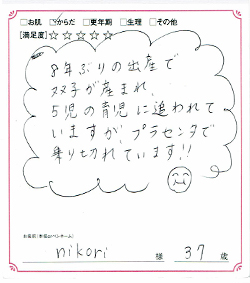 □お肌 ☑からだ □更年期 □生理 □その他
[満足度]☆☆☆☆☆
8年ぶりの出産で
双子が産まれ、
5児の育児に追われて
いますが、プラセンタで
乗り切れています!!
お名前(本名orペンネーム)
nikori 様 37歳